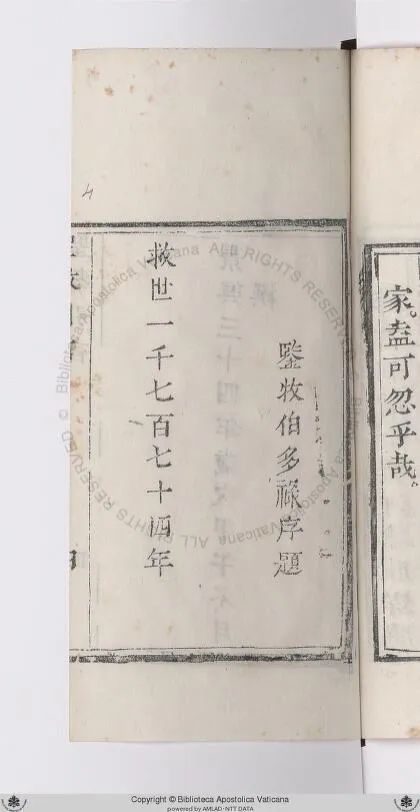 家。盍可忽乎哉。
鑒牧伯多祿序題
救世一千七百七十四年
4
© Biblioteca Apostolica Vaticana ALL RIGHTS RESERVED
Copyright © Biblioteca Apostolica Vaticana
powered by AMLAD - NTT DATA